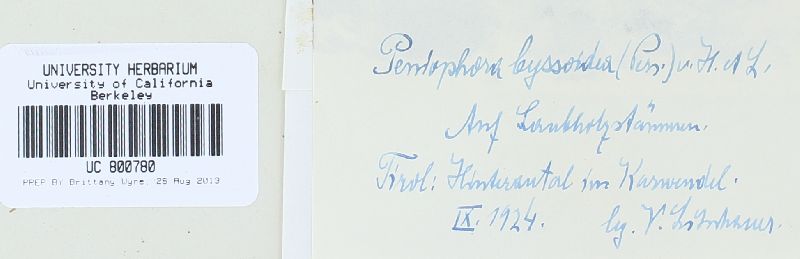 UNIVERSITY HERBARIUM
University of California
Berkeley
UC 800780
PREP BY Brittany Wyre, 25 Aug 2013
Peniophora byssoidea (Pers.) v. H. et L.
Auf Laubholzstämmen.
Tirol: Hinterautal im Karwendel.
IX. 1924. lg. V. Litschauer.